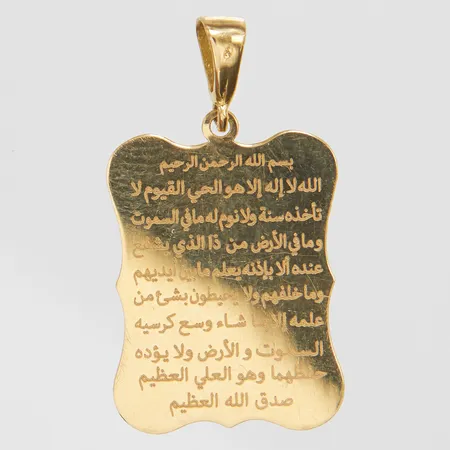 بسم الله الرحمن الرحيم
الله لا إله إلا هو الحي القيوم لا
تأخذه سنة ولا نوم له ما في السموت
وما في الأرض من ذا الذي يشفع
عنده ألا بإذنه يعلم ما بين أيديهم
وما خلفهم ولا يحيطون بشئ من
علمه إلا بما شاء وسع كرسيه
السموت و الأرض ولا يؤده
حفظهما وهو العلي العظيم
صدق الله العظيم